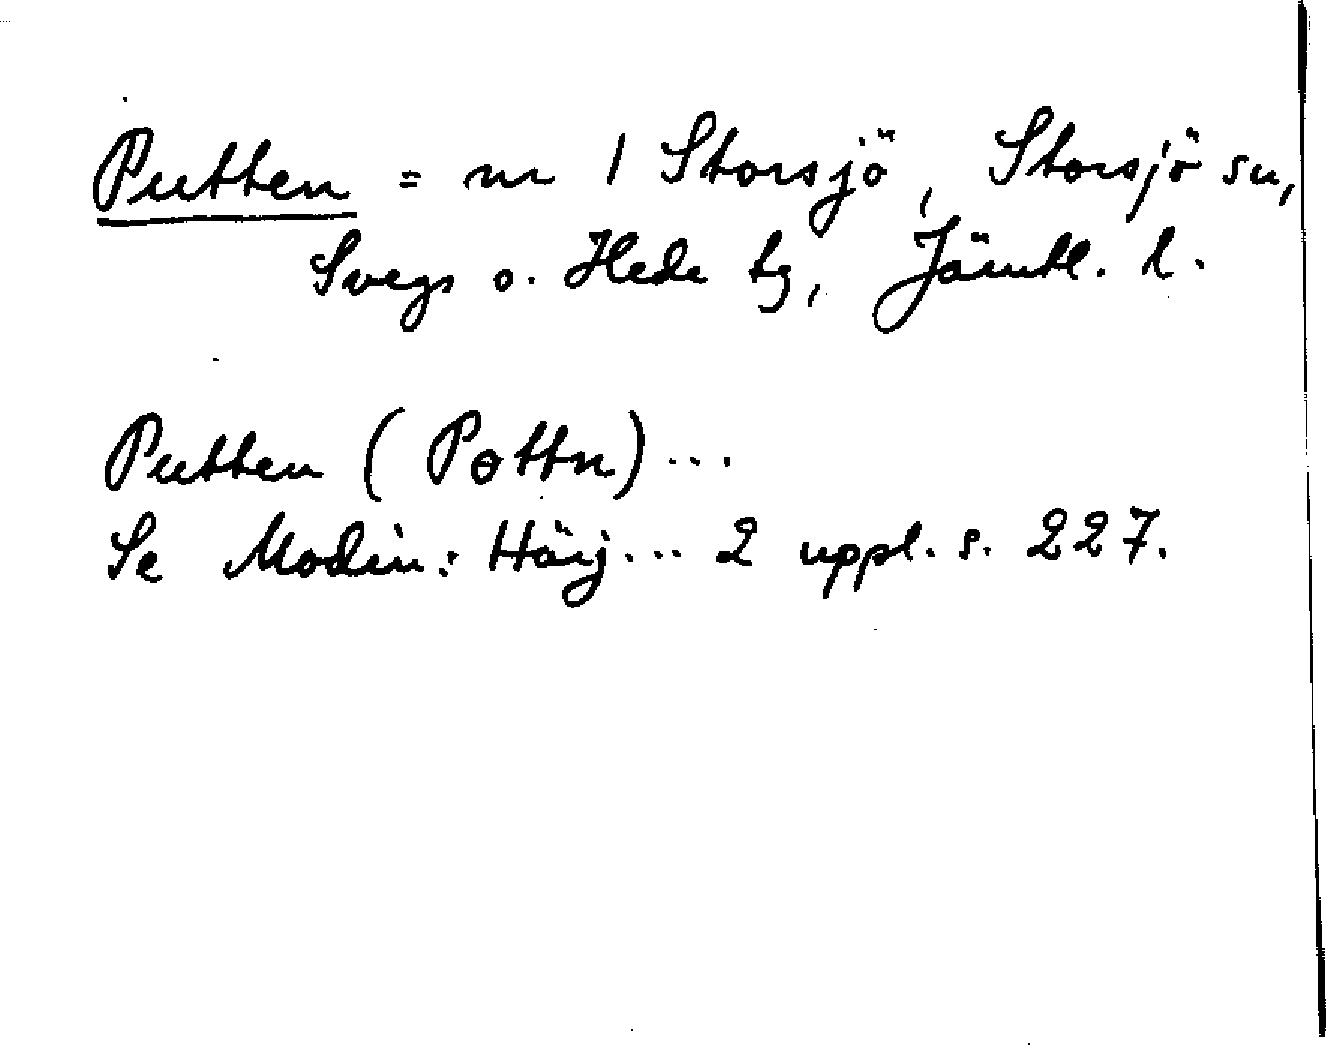 Putten = nr 1 Storsjö, Storsjö sn,
Svegs o. Hede tg, Jämtl. l.
Putten (Pottn) ...
Se Modin: Härj... 2 uppl. s. 227.